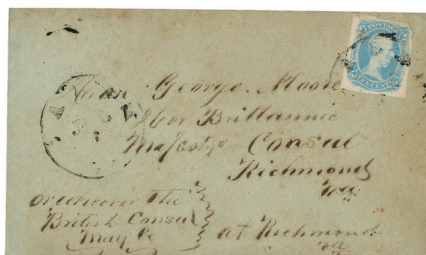 POSTAGE
TEN CENTS
George Moore
Her Brittannic
Majestys Consul
Richmond
Va
or whoever the
British Consul
May be
at Richmond
va